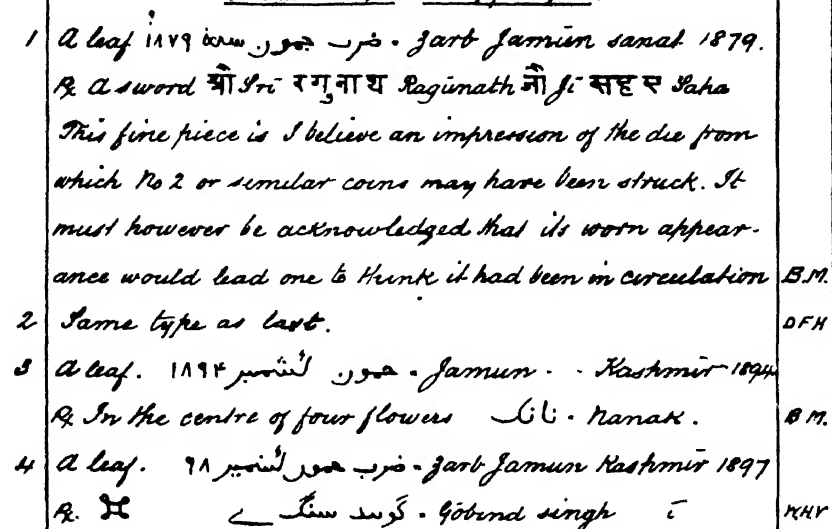 1 A leaf ضرب جمون سنة ١٨٧٩ . Zarb Jamūn sanat 1879.
℞ A sword श्री Srī रगुनाथ Ragūnath जी Jī सहाए Saha
This fine piece is I believe an impression of the die from
which No 2 or similar coins may have been struck. It
must however be acknowledged that its worn appear-
ance would lead one to think it had been in circulation B.M.
2 Same type as last. DFH
3 A leaf. جمون كشمير ١٨٩٤ . Jamun . . Kashmir 1894
℞ In the centre of four flowers نانک . Nanak. B M.
4 A leaf. ضرب جمون كشمير ٩٨ . Zarb Jamun Kashmir 1897
℞. گوبند سنگ . Gobind singh